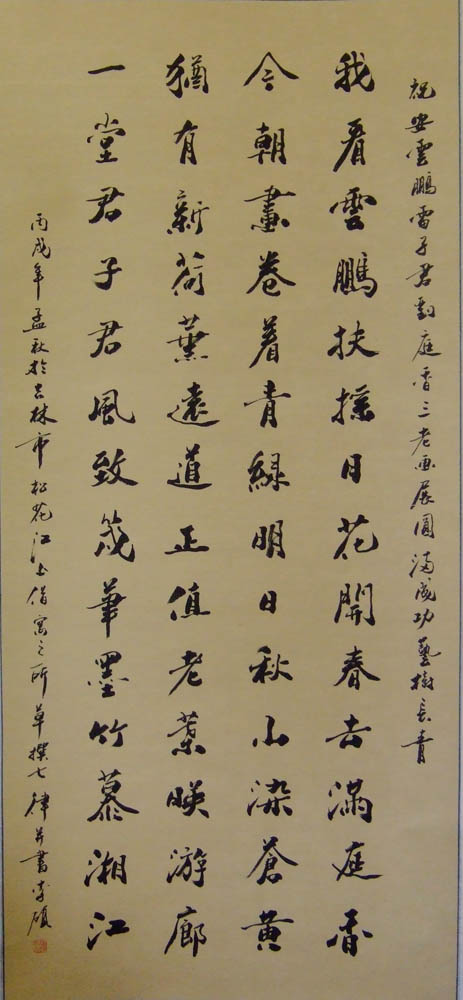 祝安雲鵬雷子君劉庭香三老画展圓滿成功藝樹長青
我看雲鵬扶摇日花開春去滿庭香
今朝畫卷着青緑明日秋山染蒼黄
猶有新荷薰遠道正值老葉映游廊
一堂君子君風致幾筆墨竹慕湘江
丙戌年孟秋於吉林市松花江上借寓之所草撰七律并書